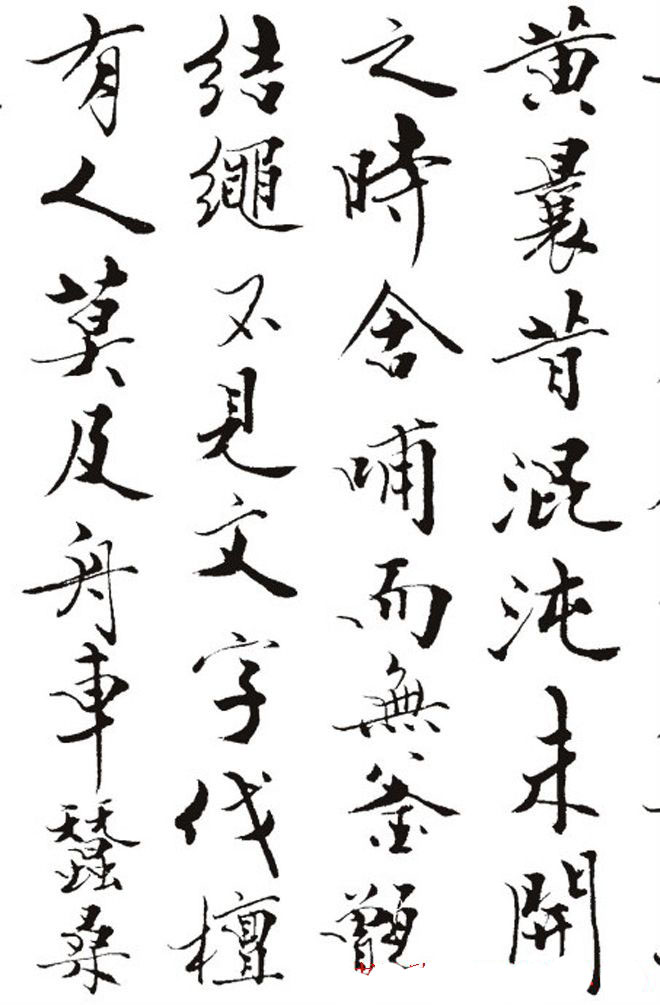 黄曩昔混沌未開
之時含哺而無釜甑
结繩不見文字伐檀
有人莫及舟車蠶桑